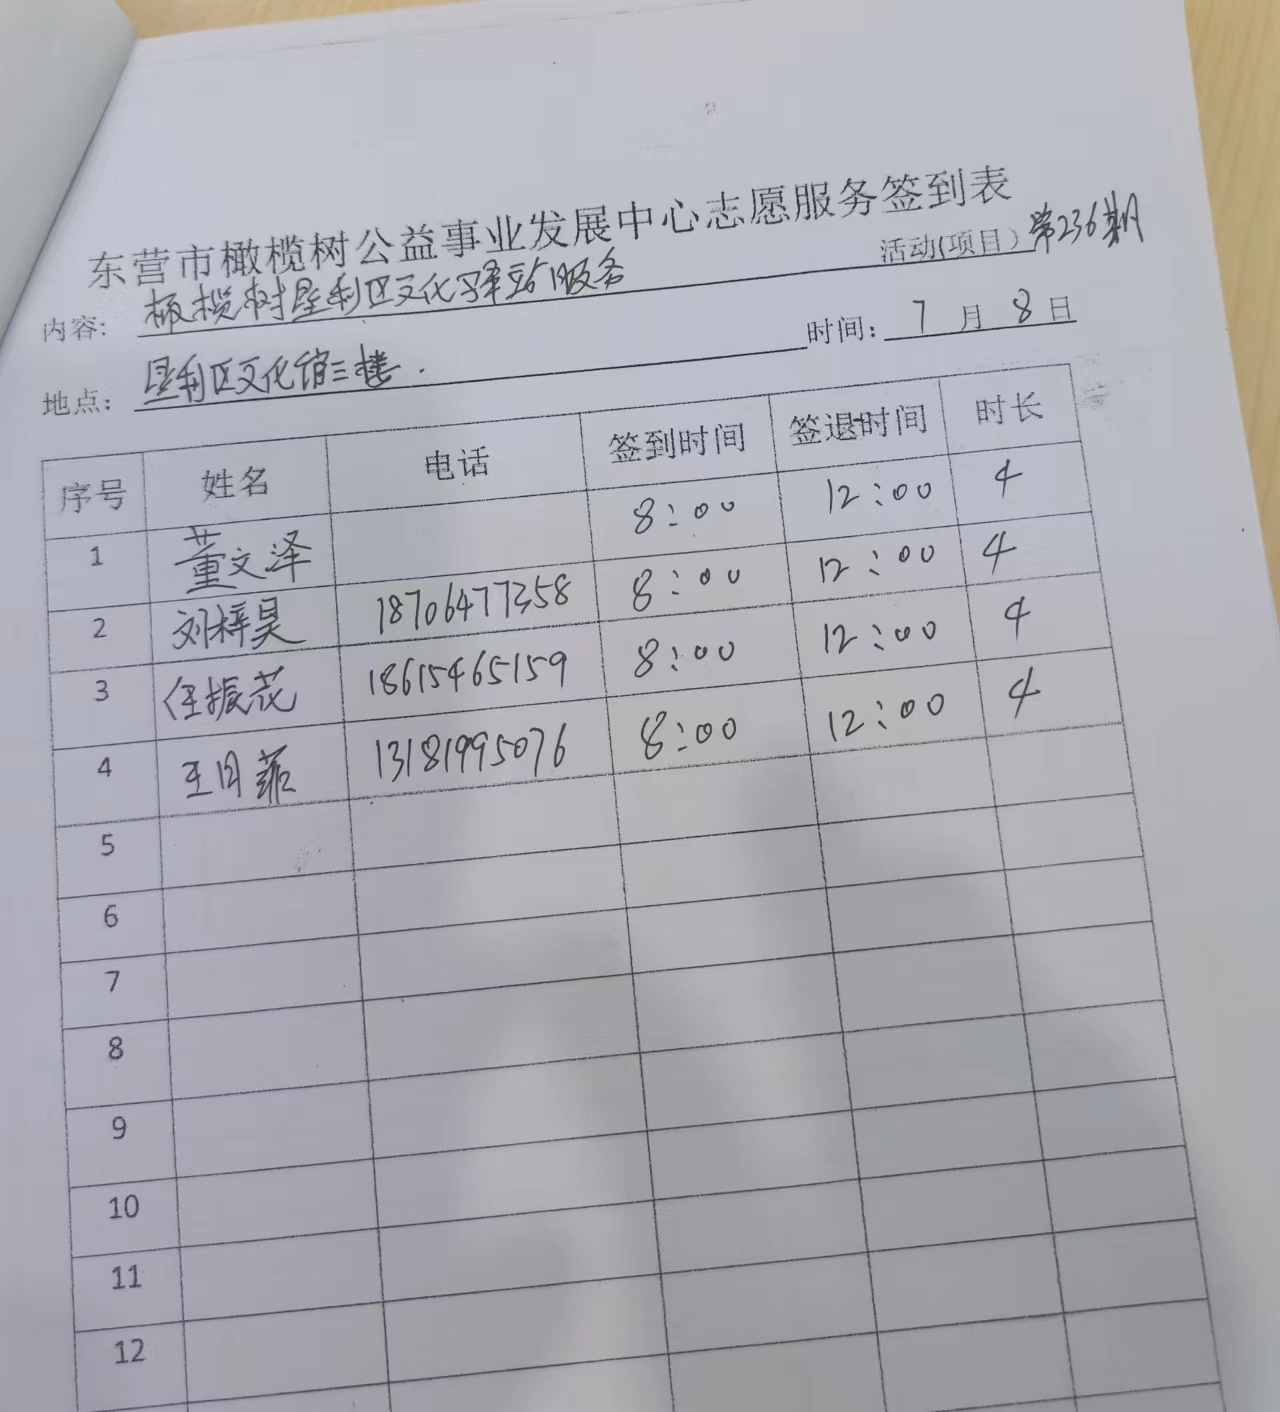 东营市橄榄树公益事业发展中心志愿服务签到表
活动(项目) 第236期
内容: 橄榄树垦利区文化驿站服务
时间: 7 月 8 日
地点: 垦利区文化馆三楼.
序号 姓名 电话 签到时间 签退时间 时长
1 董文泽 8:00 12:00 4
2 刘梓昊 18706477358 8:00 12:00 4
3 任振花 18615465159 8:00 12:00 4
4 王月 13181995076 8:00 12:00 4
5
6
7
8
9
10
11
12